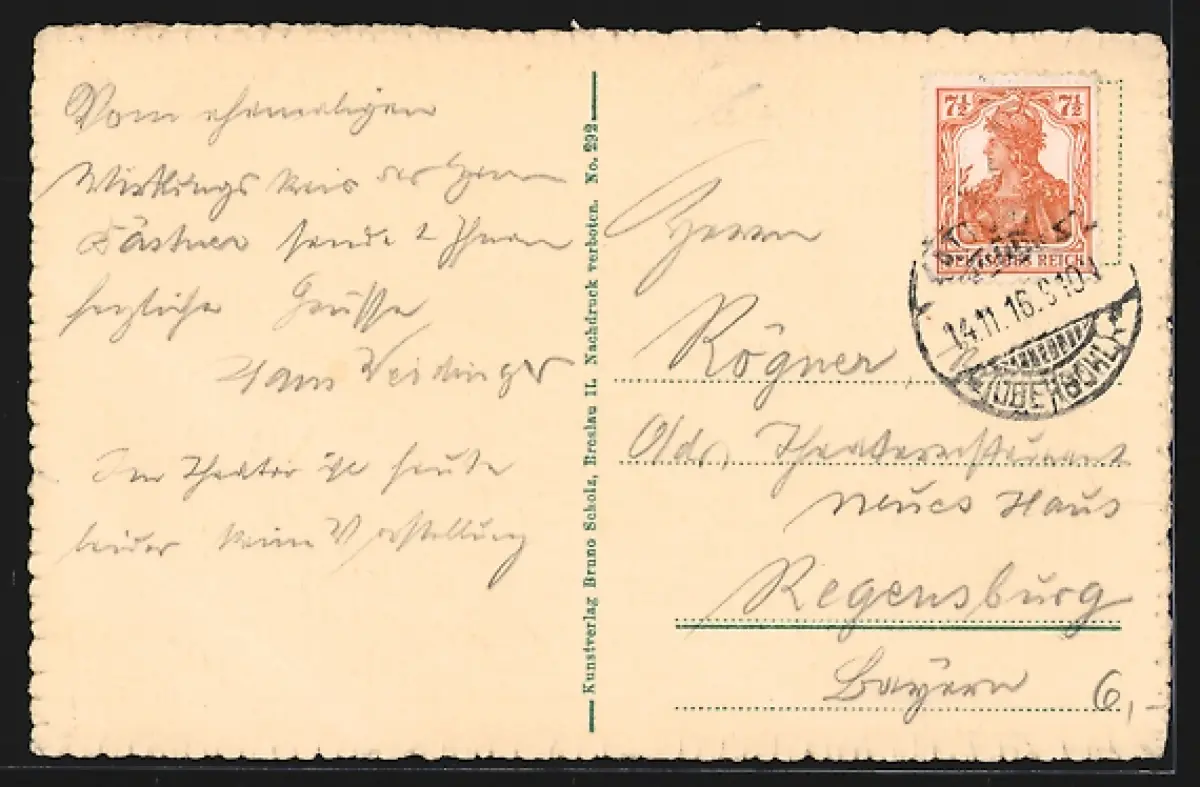 Vom ehemaligen
Wirkungskreis des Herrn
Kästner sendet Ihnen
herzliche Grüsse
Hans Weidinger
Im Theater ist heute
leider keine Vorstellung
Kunstverlag Bruno Scholz, Breslau II. Nachdruck verboten. No. 292
7½ 7½
DEUTSCHES REICH
14.11.16.
(OBERSCHL)
Herrn
Rögner
Theaterrestaurant
Neues Haus
Regensburg
Bayern
6,-